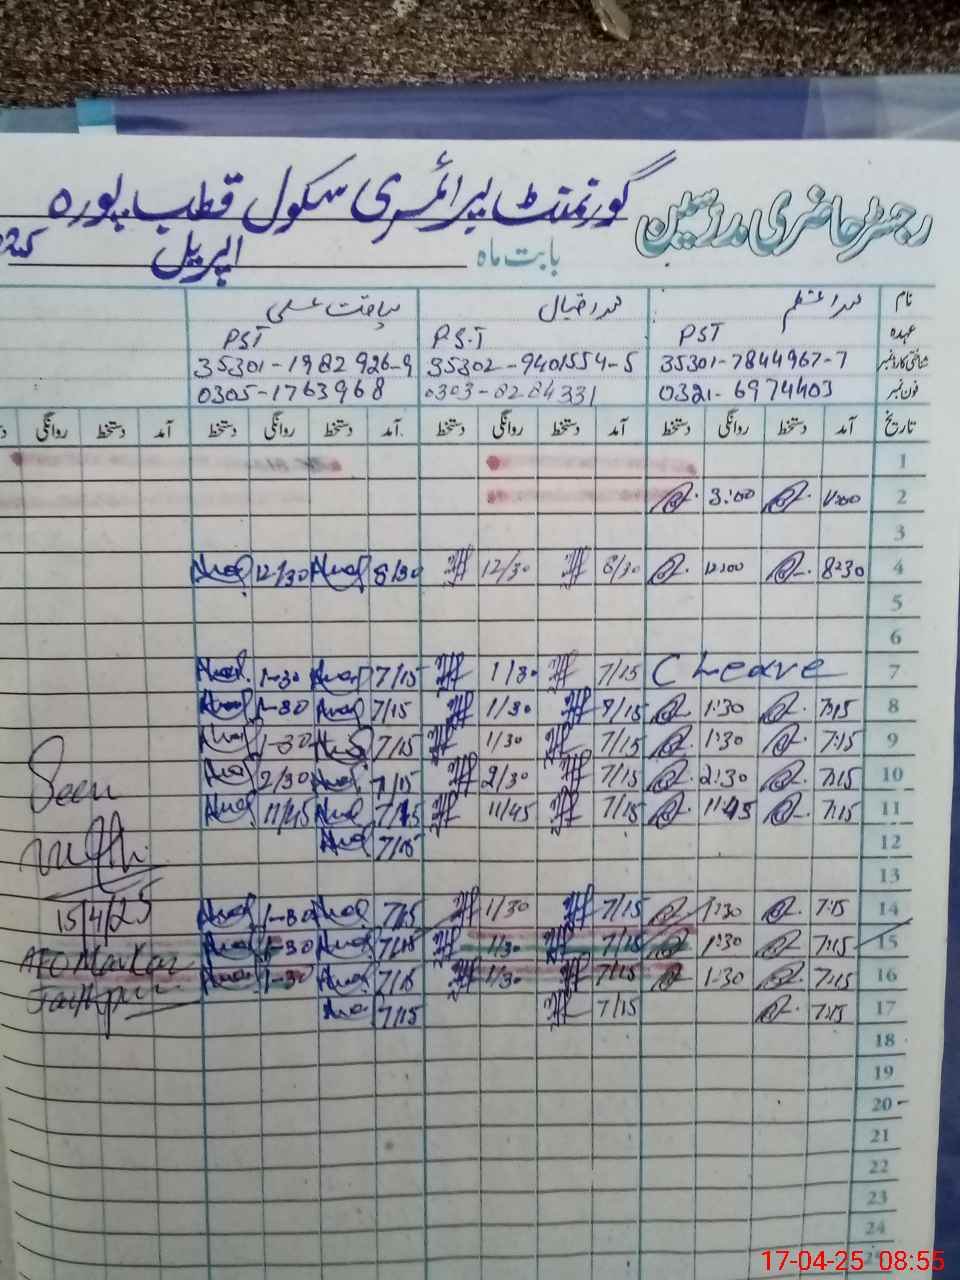 رجسٹر حاضری مدرسین گورنمنٹ پرائمری سکول قطب پورہ
بابت ماہ اپریل
نام
عہدہ PST P.S.T PST
شناختی کارڈ نمبر 35301-7844967-7 35302-9401554-5 35301-1982926-9
فون نمبر 0321-6974403 0303-8284331 0305-1763968
تاریخ آمد دستخط روانگی دستخط آمد دستخط روانگی دستخط آمد دستخط روانگی دستخط آمد دستخط روانگی
1
2 3:00
3
4 8:30 12:00 8/30 12/30 8/30 12/30
5
6
7 C Leave 7/15 1/30 7/15 1-30
8 7:15 1:30 7/15 1/30 7/15 1-30
9 7:15 1:30 7/15 1/30 7/15 1-30
10 7:15 2:30 7/15 2/30 7/15 2/30
11 7:15 11:45 7/15 11/45 7/15 11/45
12 7/15
13
14 7:15 1:30 7/15 1/30 7/15 1-30
15 7:15 1:30 7/15 1/30 7/15 1-30
16 7:15 1:30 7/15 1/30 7/15 1-30
17 7:15 7/15 7/15
18
19
20
21
22
23
24
25
Seen
15/4/25
AEO Markaz
17-04-25 08:55